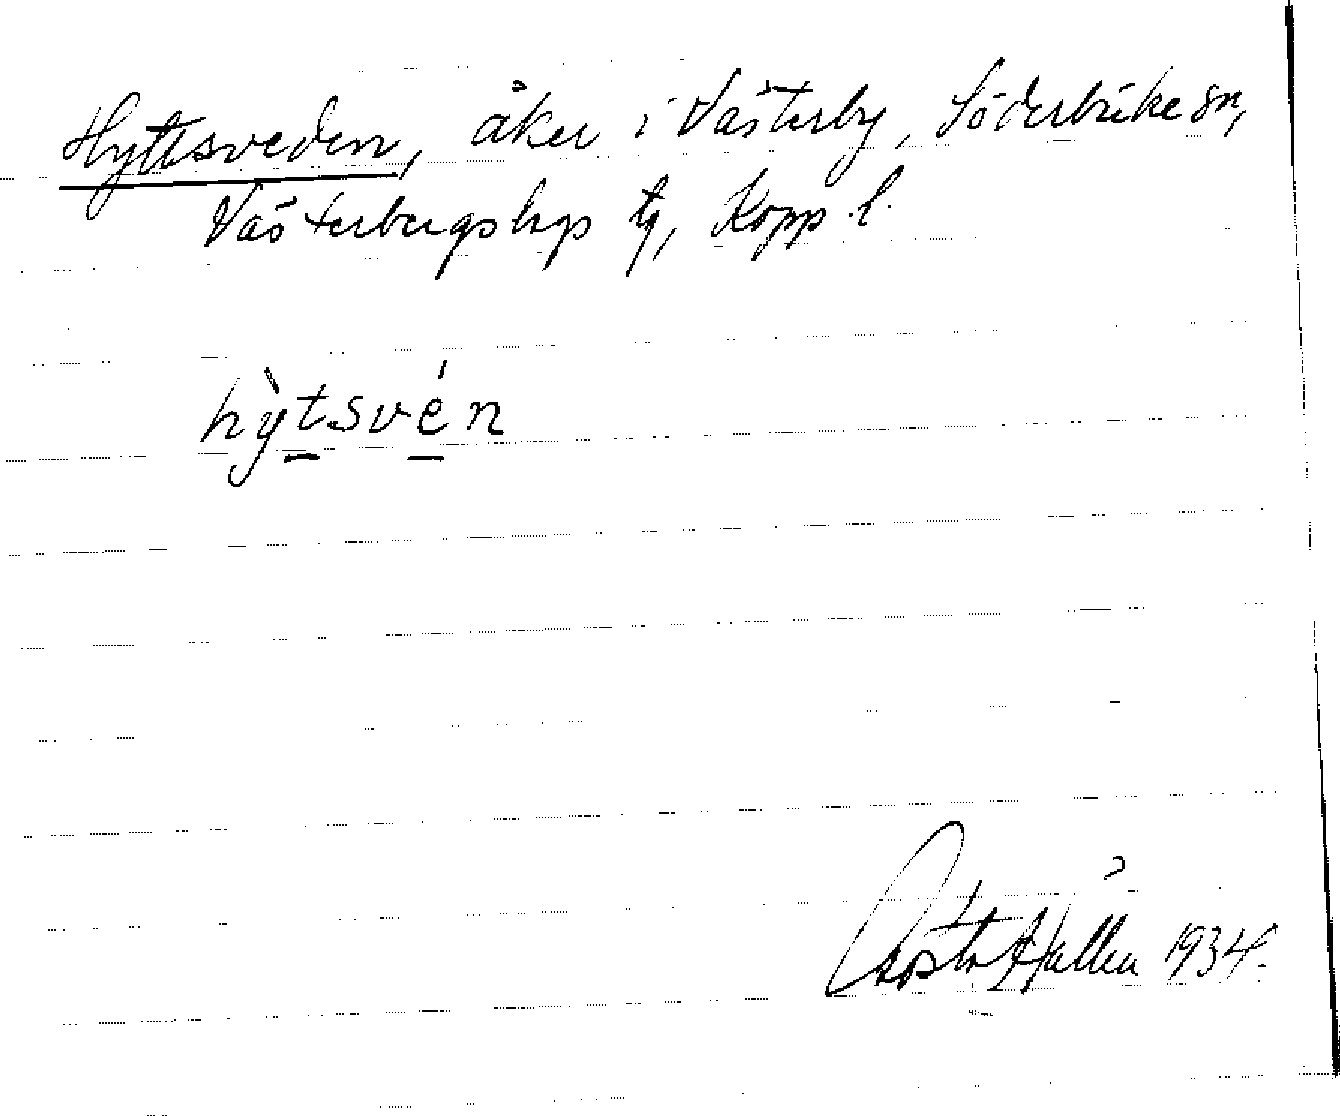 Hyttsveden, åker i Västerby, Söderbärke sn,
Västerbergslags tg, Kopp. l.
hỳtsvén
Gösta Hallén 1934.